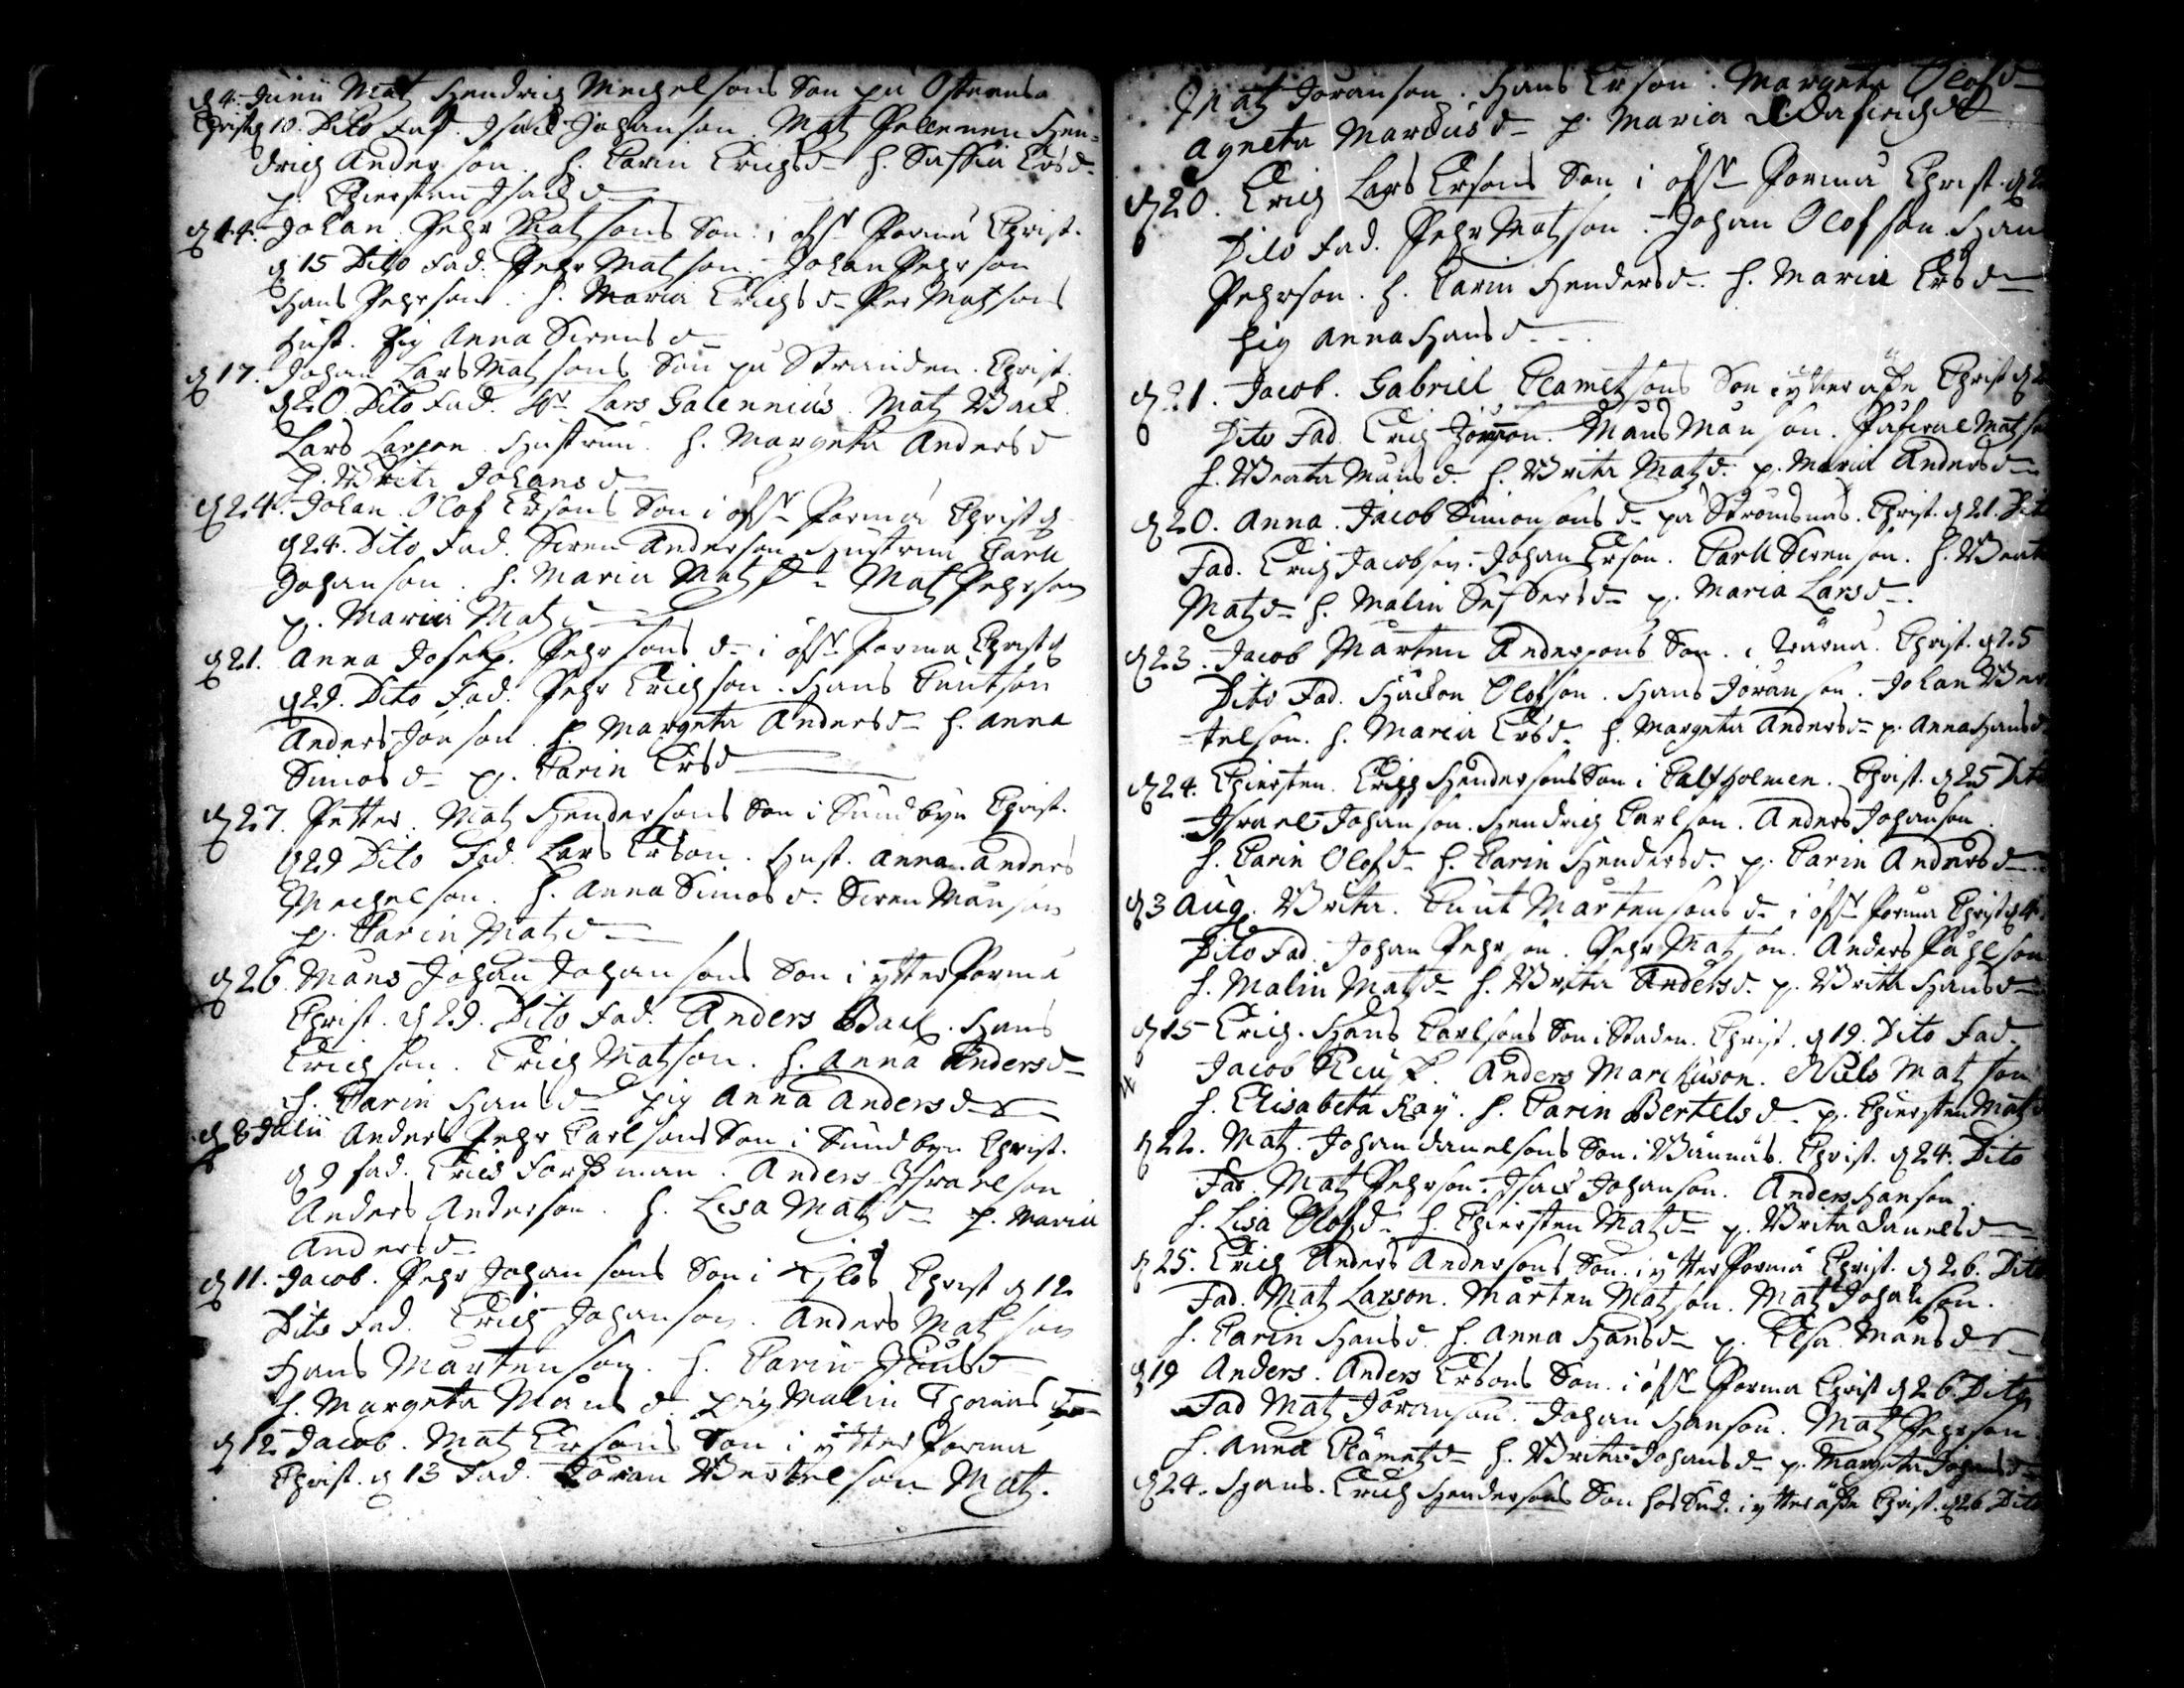 d 4. Junii Matz Hendrich Mechelsons Son på Östeensö
Christ d 10. Dito Fad. Isack Johanson. Matz Pellenen Hen-
drich Anderson. h. Carin Erichsd h. Saffia Ersd
p. Chiersten Isacksd
d 14. Johan. Pehr Matzsons Son i öfr Pörmå Christ.
d 15 Dito Fad. Pehr Matzson. Johan Pehrson
Hans Pehrson. h. Maria Erichsd Per Matzsons
Hust. pig Anna Sirensd
d 17. Johan Lars Matzsons Son på Stranden. Christ.
d 20. Dito Fad. Hr Lars Galennius. Matz Back.
Lars Larson Hustruu. h. Margeta Andersd
p. Brita Johansd
d 24. Johan. Olof Ersons Son i öfr Pörmå Christ d
d 24. Dito Fad. Siren Anderson Hustruu Carll
Johanson. h. Maria Matzd Matz Pehrson
p. Maria Matzd
d 21. Anna Joseph. Pehrsons d i öfr Pörmå Christ d
d 29. Dito Fad. Pehr Erichson. Hans Cnutson
Anders Jönson. h. Margeta Andersd h. Anna
Simosd p. Carin Ersd
d 27. Petter. Matz Hendersons Son i Sundbyn Christ.
d 29 Dito Fad. Lars Erson. Hust. Anna. Anders
Mechelson. h. Anna Simosd. Siren Månson
p. Carin Matzd
d 26. Måns Johan Johansons Son i ytter Pörmå
Christ. d 29. Dito Fad. Anders Back. Hans
Erichson. Erich Matson. h. Anna Andersd
h. Carin Hansd pig Anna Andersd
d 8 Julii Anders Pehr Carlsons Son i Sundbyn Christ.
d 9 fad. Erics Forssman. Anders Israelson
Anders Anderson. h. Lisa Matzd p. Maria
Andersd
d 11. Jacob. Pehr Johansons Son i Christ d 12
Dito Fad. Erich Johanson. Anders Matzson
Hans Mårtenson. h. Carin
h. Margeta Månsd pig Malin Thomasd
d 12 Jacob. Matz Ersons Son i ytter Pörmå
Christ. d 13 Fad. Jöran Bertelson Matz.
Matz Jöranson. Hans Erson. Margeta Olofsd
Agneta Marcusd p. Maria
d 20. Erich Lars Ersons Son i öfr Pormå Christ. d
Dito Fad. Pehr Matson. Johan Olofson Han
Pehrson. h. Carin Hendersd. h. Maria Ersd
Pig Anna Hansd
d 21. Jacob. Gabriel Clametsons Son i ytter åsse Christ d
Dito Fad. Erich Jönson. Måns Månson. Matzso
h. Beata Månsd. h. Brita Matzd. p. Maria Andersd
d 20. Anna. Jacob Simonsons d på Strömsnäs. Christ. d 21. Dit
Fad. Erich Jacobson. Johan Erson. Carll Sirenson. h. Beat
Matzd h. Malin Sefdersd p. Maria Larsd
d 23. Jacob Mårten Andersons Son. i Träsnä. Christ. d 25
Dito Fad. Håckon Olofson. Hans Jöranson. Johan Ber
telson. h. Maria Ersd h. Margeta Andersd p. Anna Hansd
d 24. Chiersten. Erich Hendersons Son i Calfholmen. Christ. d 25 Dito
Israel Johanson. Hendrich Carlson. Anders Johanson.
h. Carin Olofsd h. Carin Hendersd. p. Carin Andersd
d 3 Aug. Brita. Cnut Mårtensons d i öfr Pörmå Christ d 4.
Dito Fad. Johan Pehrson. Pehr Matzson. Anders Påhlson
h. Malin Matzd h. Brita Andersd. p. Brita Hansd
d 15 Erich. Hans Carlsons Son i Staden. Christ. d 19. Dito Fad.
Jacob. Anders Marckuson. Niels Matzson
h. Elisabeta Kay. h. Carin Bertelsd. p. Chiersten Matz
d 22. Matz. Johan danelsons Son i Bännäs. Christ. d 24. Dito
Fad. Matz Pehrson. Isack Johanson. Anders Hanson.
h. Lisa Olofsd. h. Chiersten Matzd p. Brita Danelsd
d 25. Erich Anders Andersons Son. i ytter Pormå Christ. d 26. Dito
Fad. Matz Larson. Mårten Matzon. Matz Johanson.
h. Carin Hansd. h. Anna Hansd p. Elsa Månsd
d 19 Anders. Anders Ersons Son i öfr Pormå Christ d 26. Dito
Fad Matz Jöranson. Johan Hanson. Matz Pehrson
h. Anna Clämetzd h. Brita Johansd p. Margeta Johansd
d 24. Hans. Erich Hendersons Son hos Sud. i ytter åsse Christ. d 26. Dito